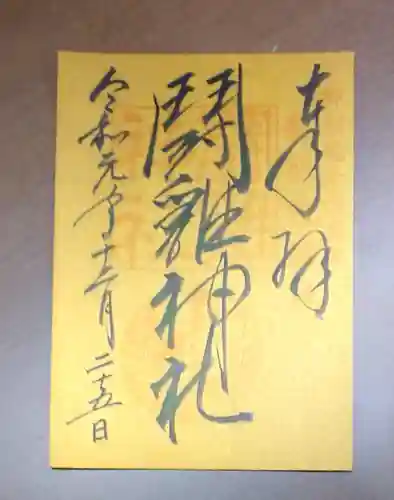 奉拝
闘雞神社
令和元年十二月二十五日